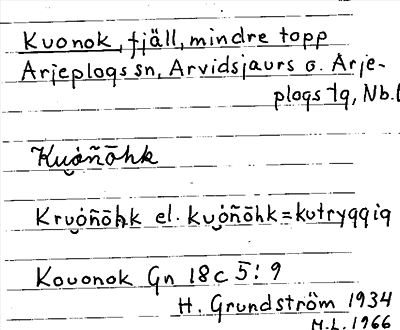 Kuonok, fjäll, mindre topp
Arjeplogs sn, Arvidsjaurs o. Arje-
plogs tg, Nb.l
Kuo̯ñōhk
Kruo̯ñōhk el. kuo̯ñōhk = kutryggig
Kouonok Gn 18c 5:9
H. Grundström 1934
M.L. 1966